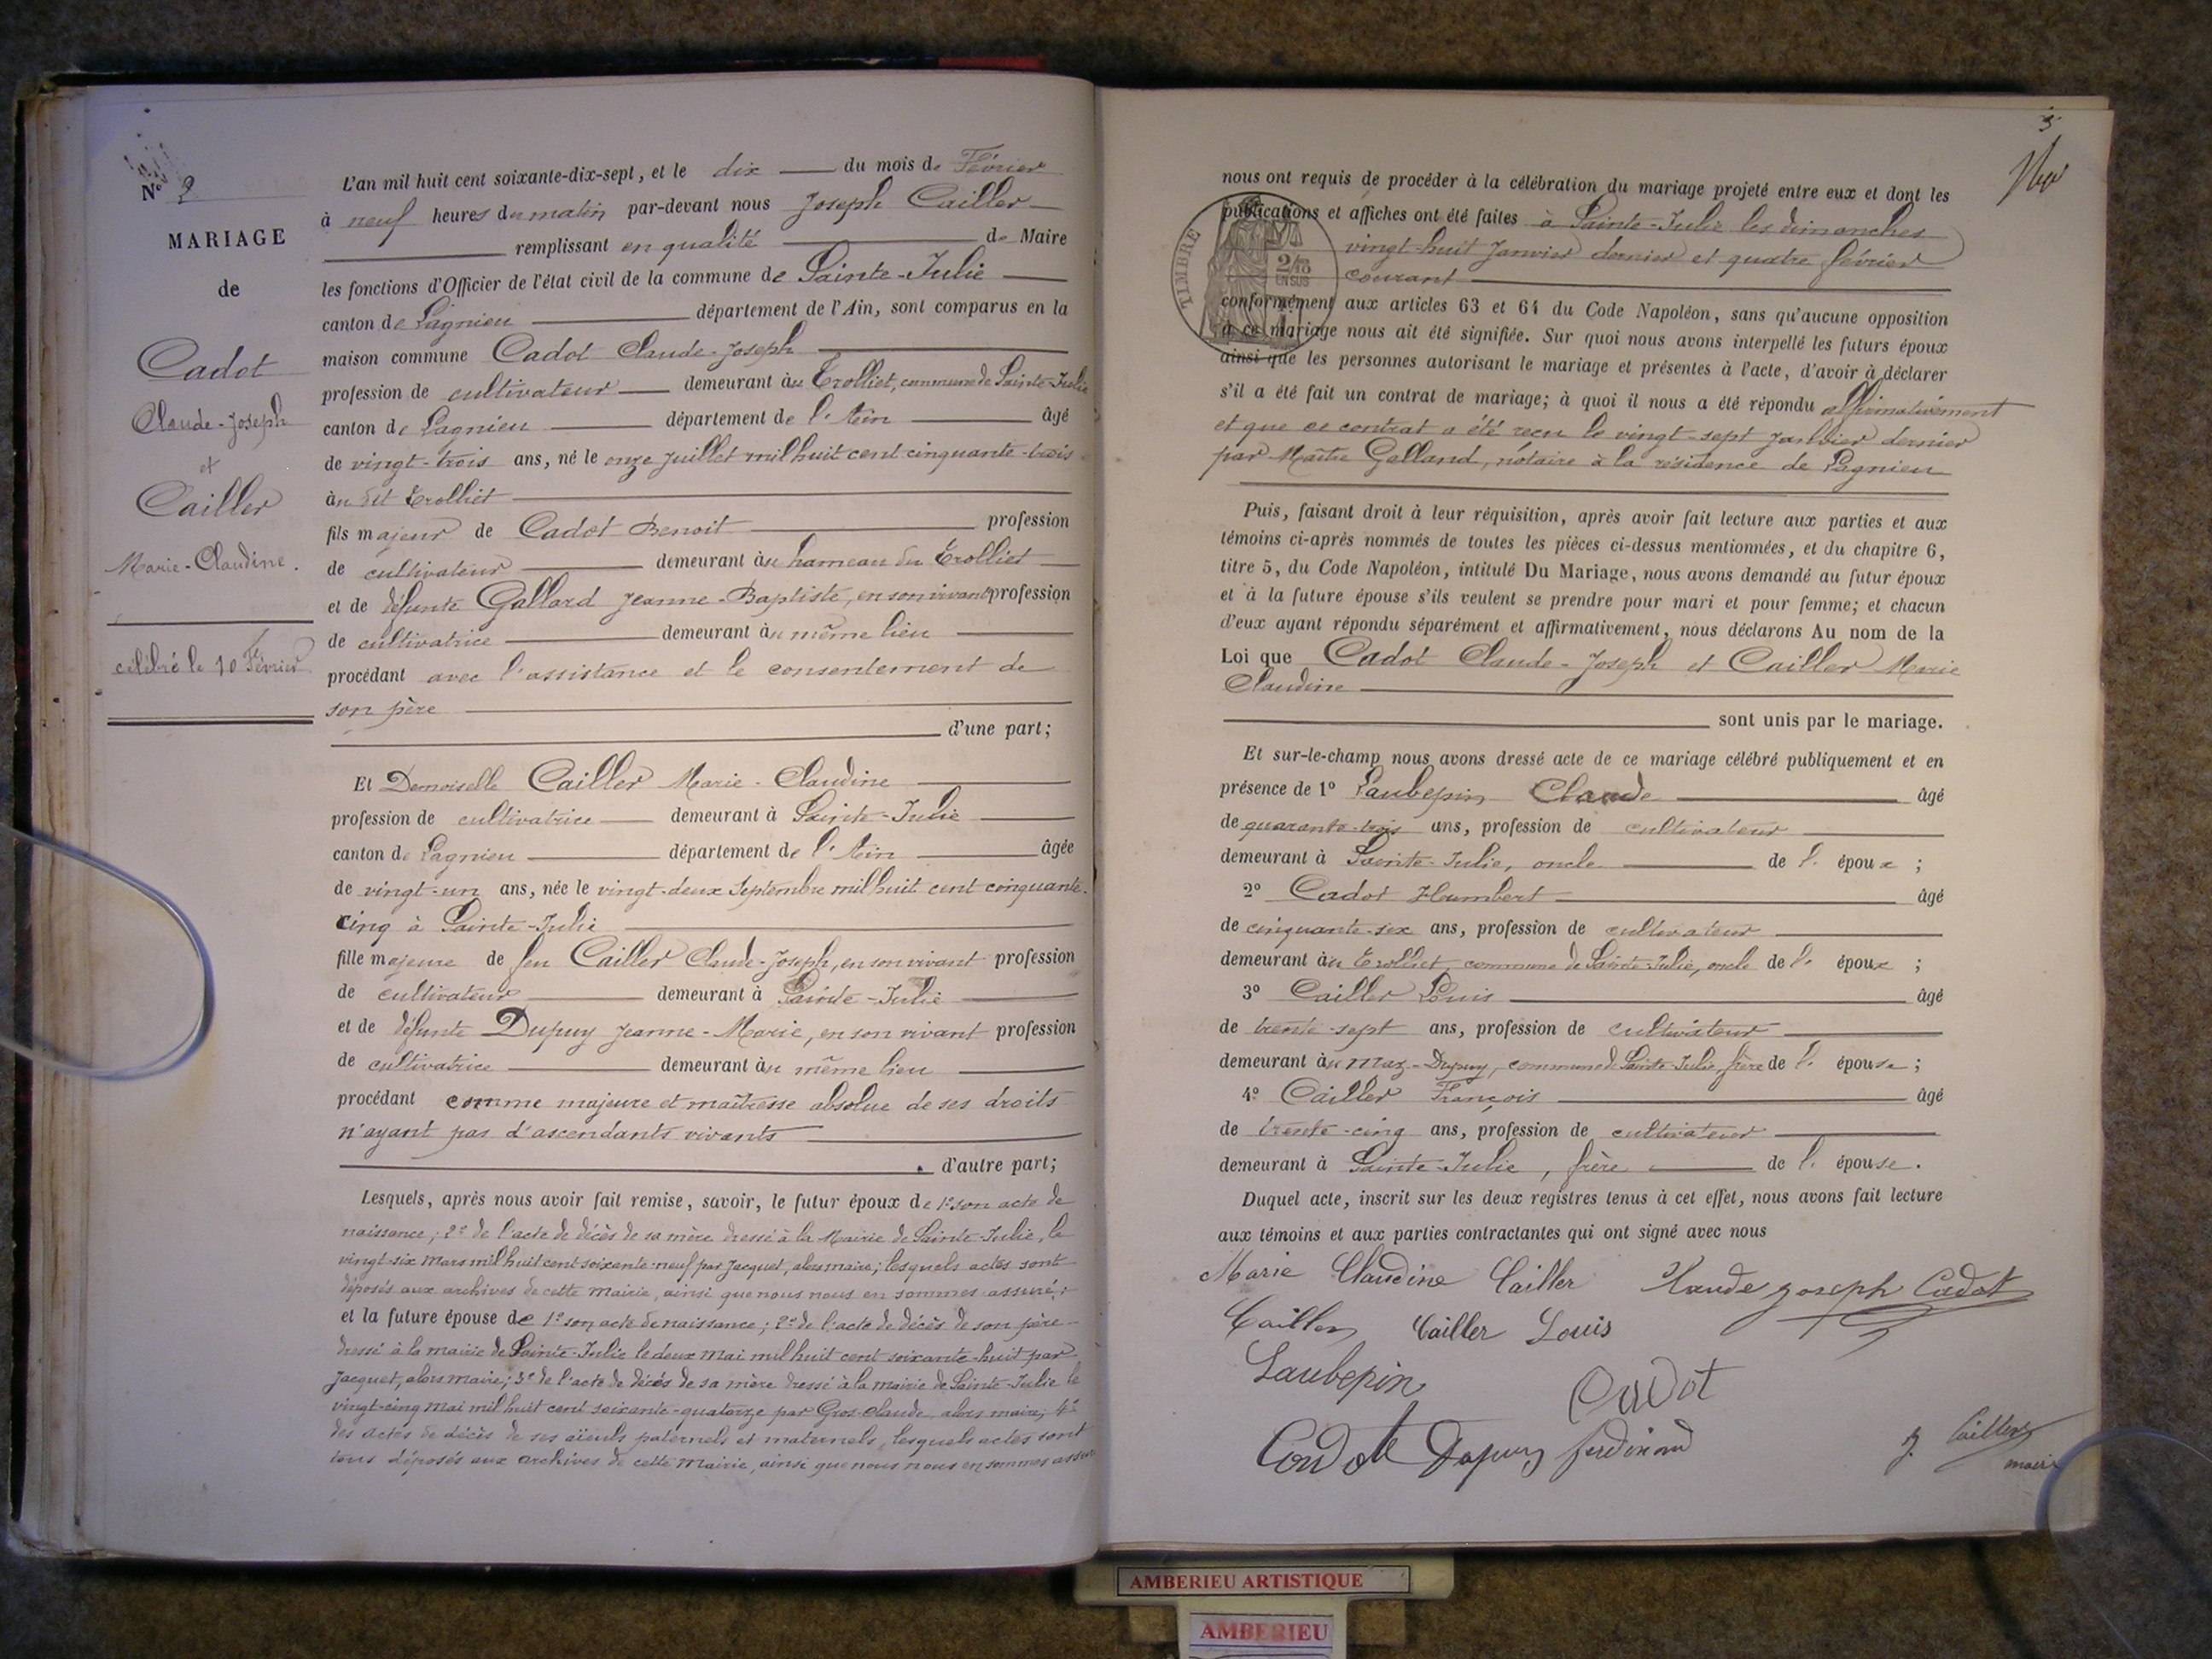 N° 2
MARIAGE
de
Cadot
Claude-Joseph
et
Cailler
Marie-Claudine.
célébré le 10 Février
L'an mil huit cent soixante-dix-sept, et le dix du mois de Février
à neuf heures du matin par-devant nous Joseph Cailler
remplissant en qualité de Maire
les fonctions d'Officier de l'état civil de la commune de Sainte-Julie
canton de Lagnieu département de l'Ain, sont comparus en la
maison commune Cadot Claude-Joseph
profession de cultivateur demeurant au Trolliet, commune de Sainte-Julie
canton de Lagnieu département de l'Ain âgé
de vingt-trois ans, né le onze juillet mil huit cent cinquante-trois
au dit Trolliet
fils majeur de Cadot Benoit profession
de cultivateur demeurant au hameau du Trolliet
et de défunte Gallard Jeanne-Baptiste, en son vivant profession
de cultivatrice demeurant au même lieu
procédant avec l'assistance et le consentement de
son père
d'une part;
Et Demoiselle Cailler Marie-Claudine
profession de cultivatrice demeurant à Sainte-Julie
canton de Lagnieu département de l'Ain âgée
de vingt-un ans, née le vingt-deux Septembre mil huit cent cinquante-
cinq à Sainte-Julie
fille majeure de feu Cailler Claude-Joseph, en son vivant profession
de cultivateur demeurant à Sainte-Julie
et de défunte Dupuy Jeanne-Marie, en son vivant profession
de cultivatrice demeurant au même lieu
procédant comme majeure et maîtresse absolue de ses droits
n'ayant pas d'ascendants vivants
d'autre part;
Lesquels, après nous avoir fait remise, savoir, le futur époux de 1° son acte de
naissance; 2° de l'acte de décès de sa mère dressé à la Mairie de Sainte-Julie, le
vingt-six mars mil huit cent soixante-neuf par Jacquet, alors maire; lesquels actes sont
déposés aux archives de cette Mairie, ainsi que nous nous en sommes assuré;
et la future épouse de 1° son acte de naissance; 2° de l'acte de décès de son père
dressé à la mairie de Sainte-Julie le deux mai mil huit cent soixante-huit par
Jacquet, alors maire; 3° de l'acte de décès de sa mère dressé à la mairie de Sainte-Julie le
vingt-cinq mai mil huit cent soixante-quatorze par Gros-Claude alors maire; 4°
des actes de décès de ses aïeuls paternels et maternels, lesquels actes sont
tous déposés aux archives de cette Mairie, ainsi que nous nous en sommes assuré
3
nous ont requis de procéder à la célébration du mariage projeté entre eux et dont les
publications et affiches ont été faites à Sainte-Julie les dimanches
vingt-huit Janvier dernier et quatre février
courant
TIMBRE
2/10
EN SUS
conformément aux articles 63 et 64 du Code Napoléon, sans qu'aucune opposition
à ce mariage nous ait été signifiée. Sur quoi nous avons interpellé les futurs époux
ainsi que les personnes autorisant le mariage et présentes à l'acte, d'avoir à déclarer
s'il a été fait un contrat de mariage; à quoi il nous a été répondu affirmativement
et que ce contrat a été reçu le vingt-sept janvier dernier
par Maître Galland, notaire à la résidence de Lagnieu
Puis, faisant droit à leur réquisition, après avoir fait lecture aux parties et aux
témoins ci-après nommés de toutes les pièces ci-dessus mentionnées, et du chapitre 6,
titre 5, du Code Napoléon, intitulé Du Mariage, nous avons demandé au futur époux
et à la future épouse s'ils veulent se prendre pour mari et pour femme; et chacun
d'eux ayant répondu séparément et affirmativement, nous déclarons Au nom de la
Loi que Cadot Claude-Joseph et Cailler Marie
Claudine
sont unis par le mariage.
Et sur-le-champ nous avons dressé acte de ce mariage célébré publiquement et en
présence de 1° Laubepin Claude âgé
de quarante-trois ans, profession de cultivateur
demeurant à Sainte-Julie, oncle de l'époux;
2° Cadot Humbert âgé
de cinquante-six ans, profession de cultivateur
demeurant au Trolliet, commune de Sainte-Julie, oncle de l'époux;
3° Cailler Louis âgé
de trente-sept ans, profession de cultivateur
demeurant au Maz-Dupuy, commune de Sainte-Julie, frère de l'épouse;
4° Cailler François âgé
de trente-cinq ans, profession de cultivateur
demeurant à Sainte-Julie, frère de l'épouse.
Duquel acte, inscrit sur les deux registres tenus à cet effet, nous avons fait lecture
aux témoins et aux parties contractantes qui ont signé avec nous
Marie Claudine Cailler Claude Joseph Cadot
Cailler Cailler Louis
Laubepin Cadot
Cadot Dupuy ferdinand J. Cailler
maire
AMBERIEU ARTISTIQUE
AMBERIEU